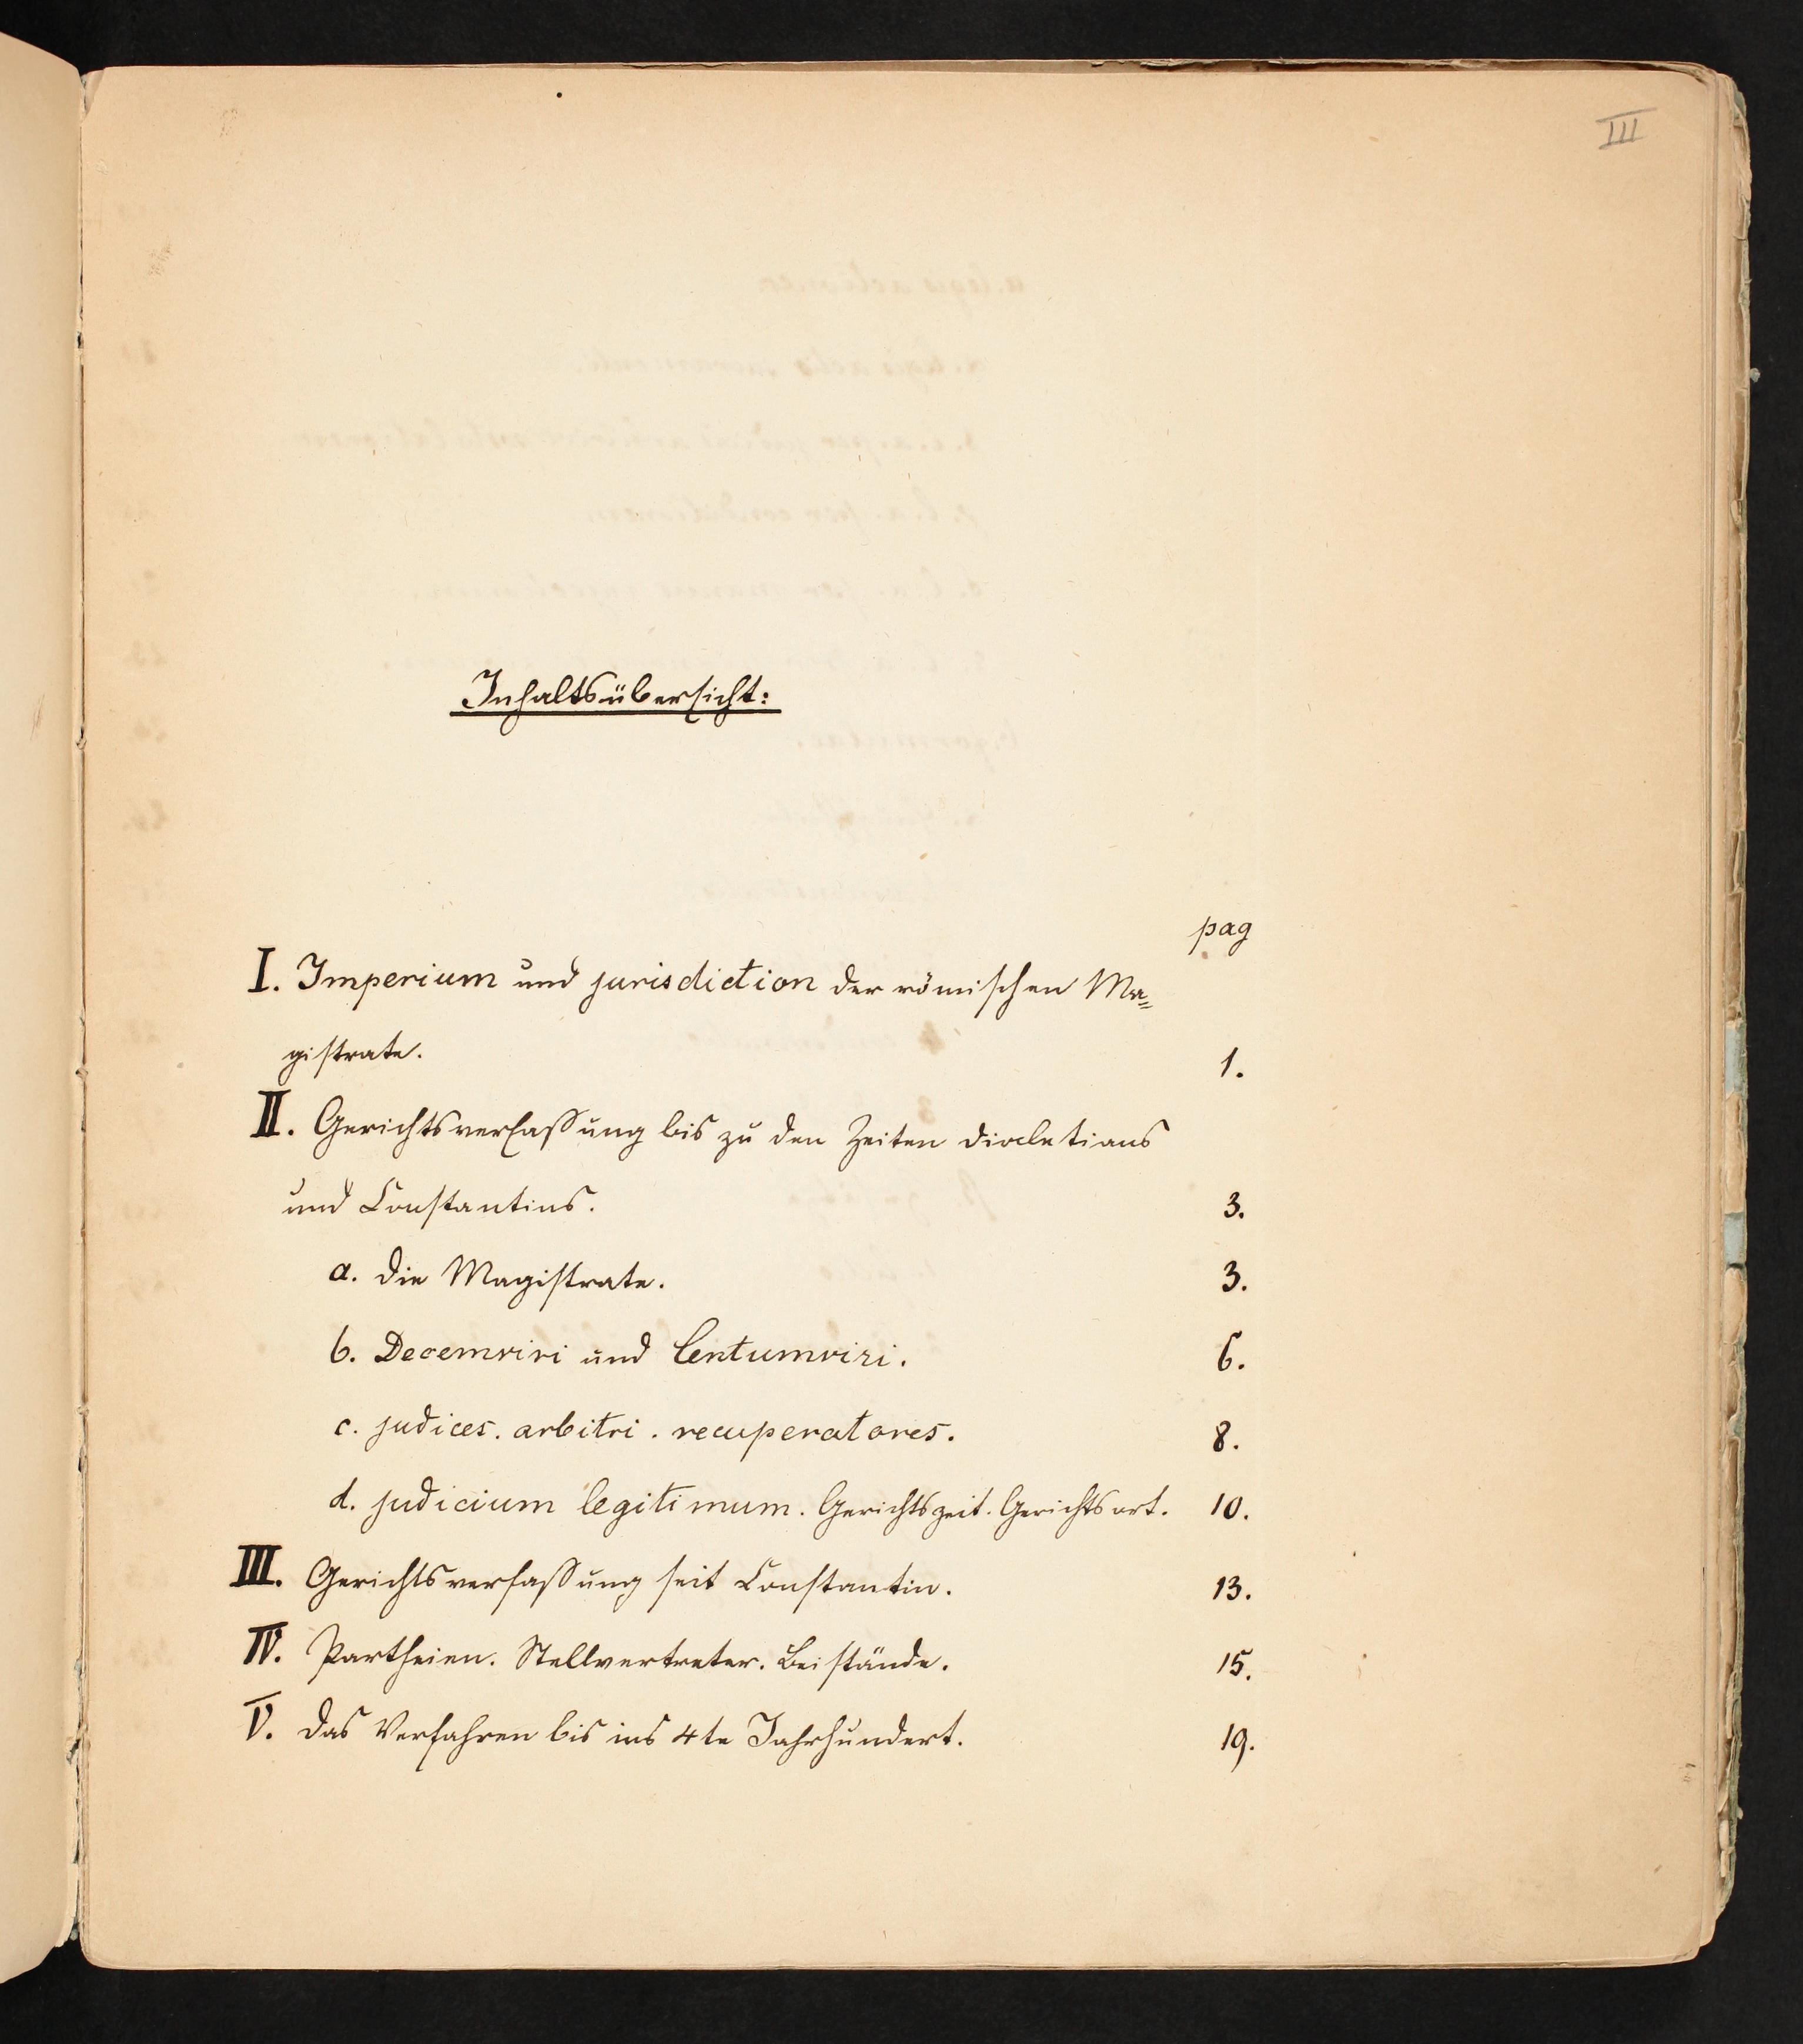 III
Inhaltsübersicht:
pag
I. Imperium und jurisdiction der römischen Ma=
gistrate. 1.
II. Gerichtsverfassung bis zu den Zeiten Diocletians
und Constantins. 3.
a. Die Magistrate. 3.
b. Decemviri und Centumviri. 6.
c. judices. arbitri. recuperatores. 8.
d. judicium legitimum. Gerichtszeit. Gerichtsort. 10.
III. Gerichtsverfassung seit Constantin. 13.
IV. Partheien. Stellvertreter. Beistände. 15.
V. Das Verfahren bis ins 4te Jahrhundert. 19.